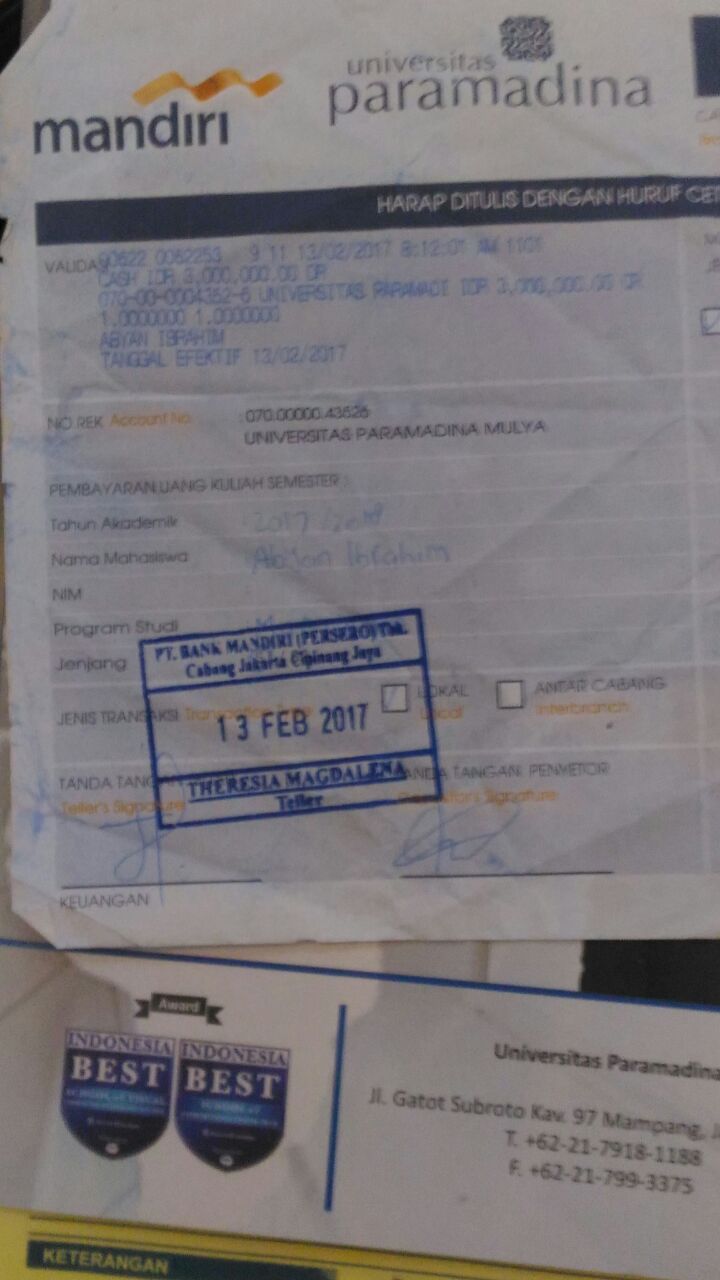 mandiri
universitas
paramadina
HARAP DITULIS DENGAN HURUF CE
VALIDA
90622 0062253 9 11 13/02/2017 8:12:01 AM 1101
CASH IDR 3,000,000.00 DR
UNIVERSITAS PARAMADI IDR 3,000,000.00 CR
1.0000000 1.0000000
ABYAN IBRAHIM
TANGGAL EFEKTIF 13/02/2017
NO.REK Account No. : 070.00000.43626
UNIVERSITAS PARAMADINA MULYA
PEMBAYARAN UANG KULIAH SEMESTER :
Tahun Akademik : 2017/2018
Nama Mahasiswa : Abyan Ibrahim
NIM
Program Studi
Jenjang
PT. BANK MANDIRI (PERSERO) Tbk.
Cabang Jakarta Cipinang Jaya
JENIS TRANSAKSI
LOKAL
Local
ANTAR CABANG
Interbranch
13 FEB 2017
THERESIA MAGDALENA
Teller
TANDA TANGAN
Teller's Signature
TANDA TANGAN PENYETOR
Signature
KEUANGAN
Award
INDONESIA
BEST
INDONESIA
BEST
Universitas Paramadina
Jl. Gatot Subroto Kav. 97 Mampang, J
T. +62-21-7918-1188
F. +62-21-799-3375
KETERANGAN